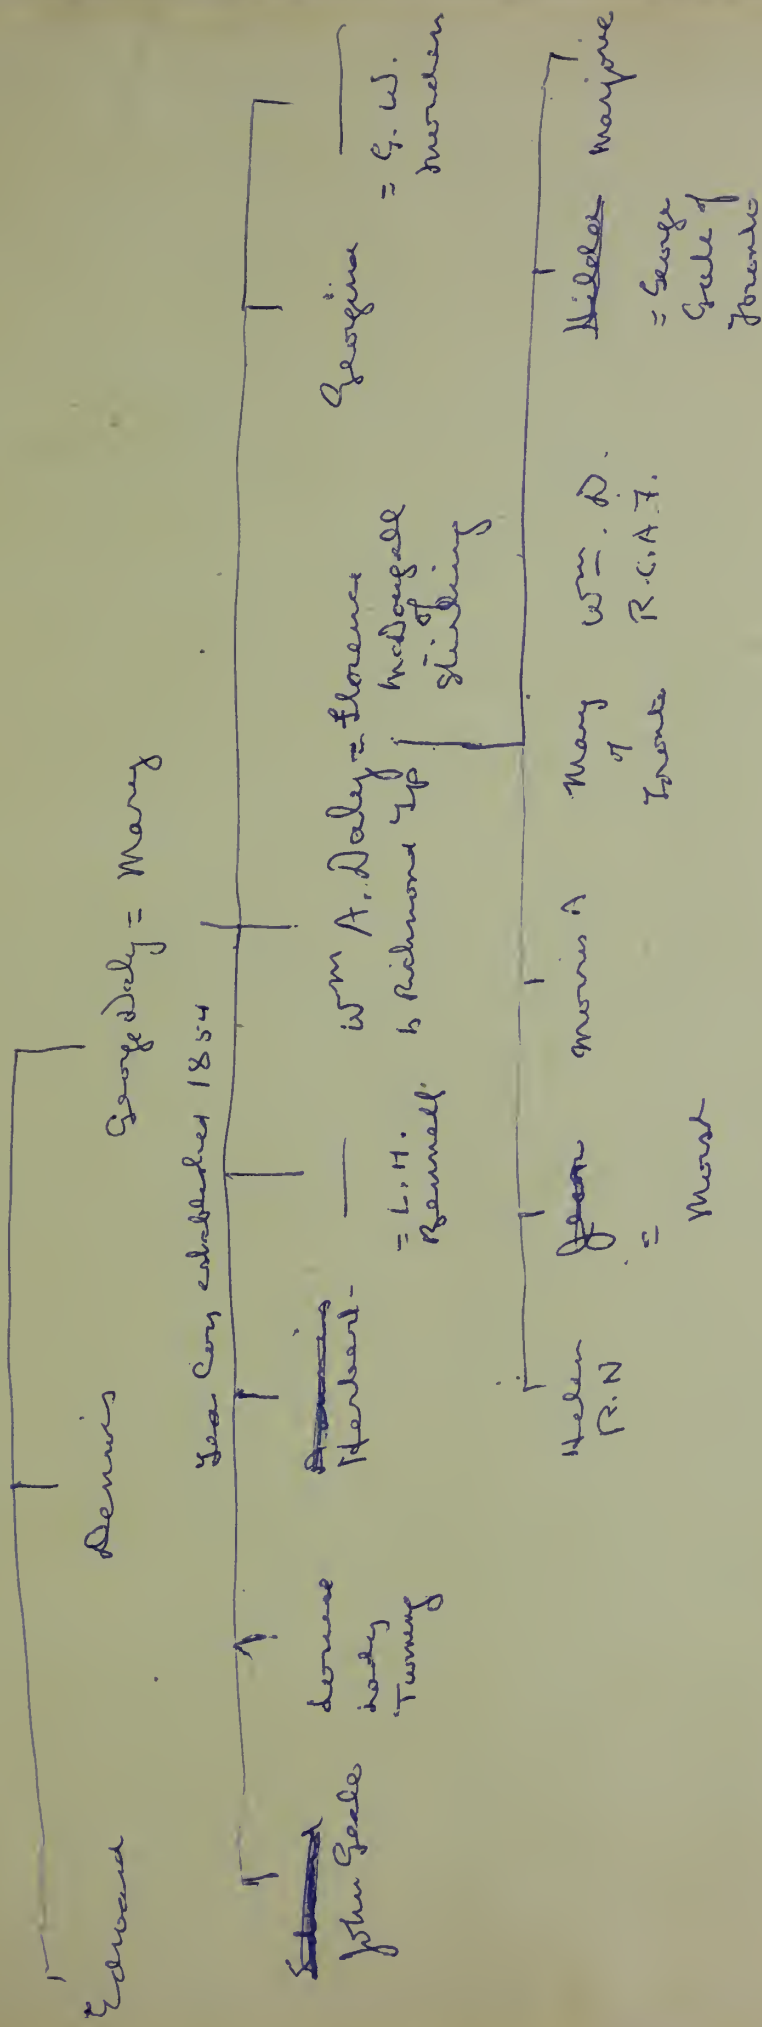 Edward
Dennis
George Daly = Mary
Tea Coy established 1854
John Geale
Louise
Lady
Twining
Herbert
= L. H.
Bennett
Wm A. Daley = Florence
McDougall
of
Stirling
b Richmond Tp
Georgina
= G. W.
Morden
Helen
R.N
Jean
=
Morris A
Mary
of
Toronto
Wm. D.
R.C.A.F.
Hilda
= George
Gale of
Toronto
Marjorie